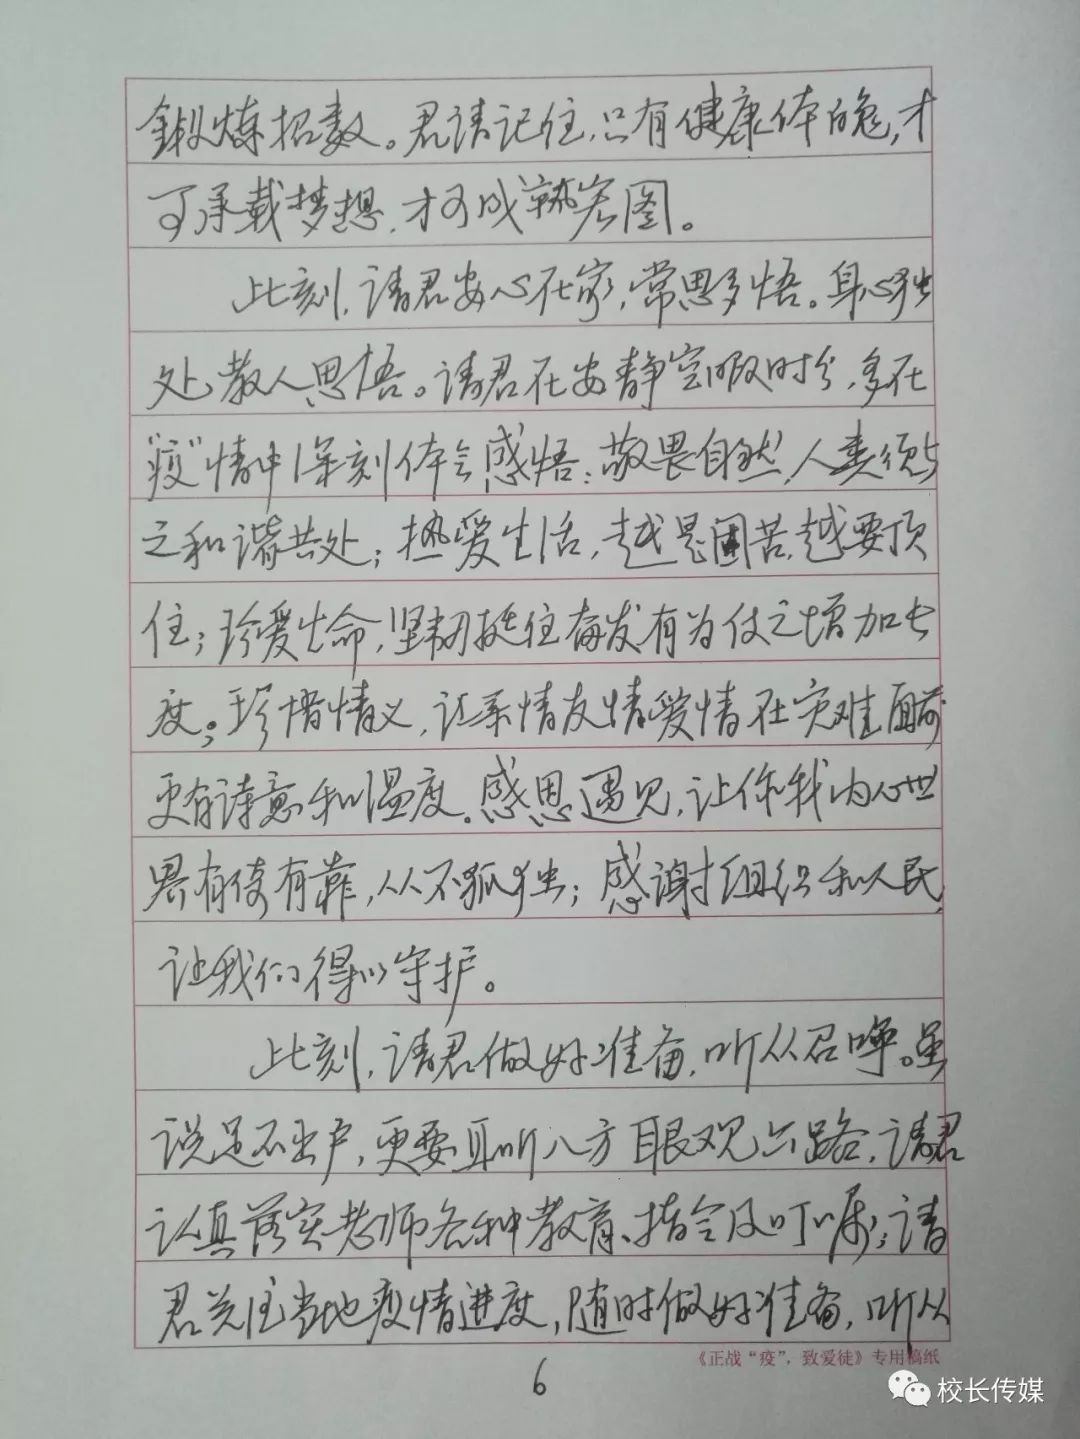 锻炼招数。君请记住,只有健康体魄,才
可承载梦想,才可成就宏图。
此刻,请君安心在家,常思多悟。身心独
处,教人思悟。请君在安静空暇时分,多在
“疫”情中深刻体会感悟:敬畏自然,人类须与
之和谐共处;热爱生活,越是困苦,越要顶
住;珍爱生命,坚韧挺住奋发有为使之增加长
度。;珍惜情义,让亲情友情爱情在灾难面前
更有诗意和温度。感恩遇见,让你我内心世
界有倚有靠,从不孤独;感谢组织和人民,
让我们得以守护。
此刻,请君做好准备,听从召唤。虽
说足不出户,更要耳听八方眼观六路,请君
认真落实老师各种教育、指令及叮嘱;请
君关注当地疫情进度,随时做好准备,听从
《正战“疫”,致爱徒》专用稿纸
6
校长传媒